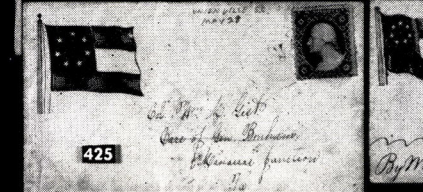 UNIONVILLE S.C.
MAY 28
Col. Wm. H. Gist
Care of Gen. Bonham
Manassas Junction
Va
425
By M